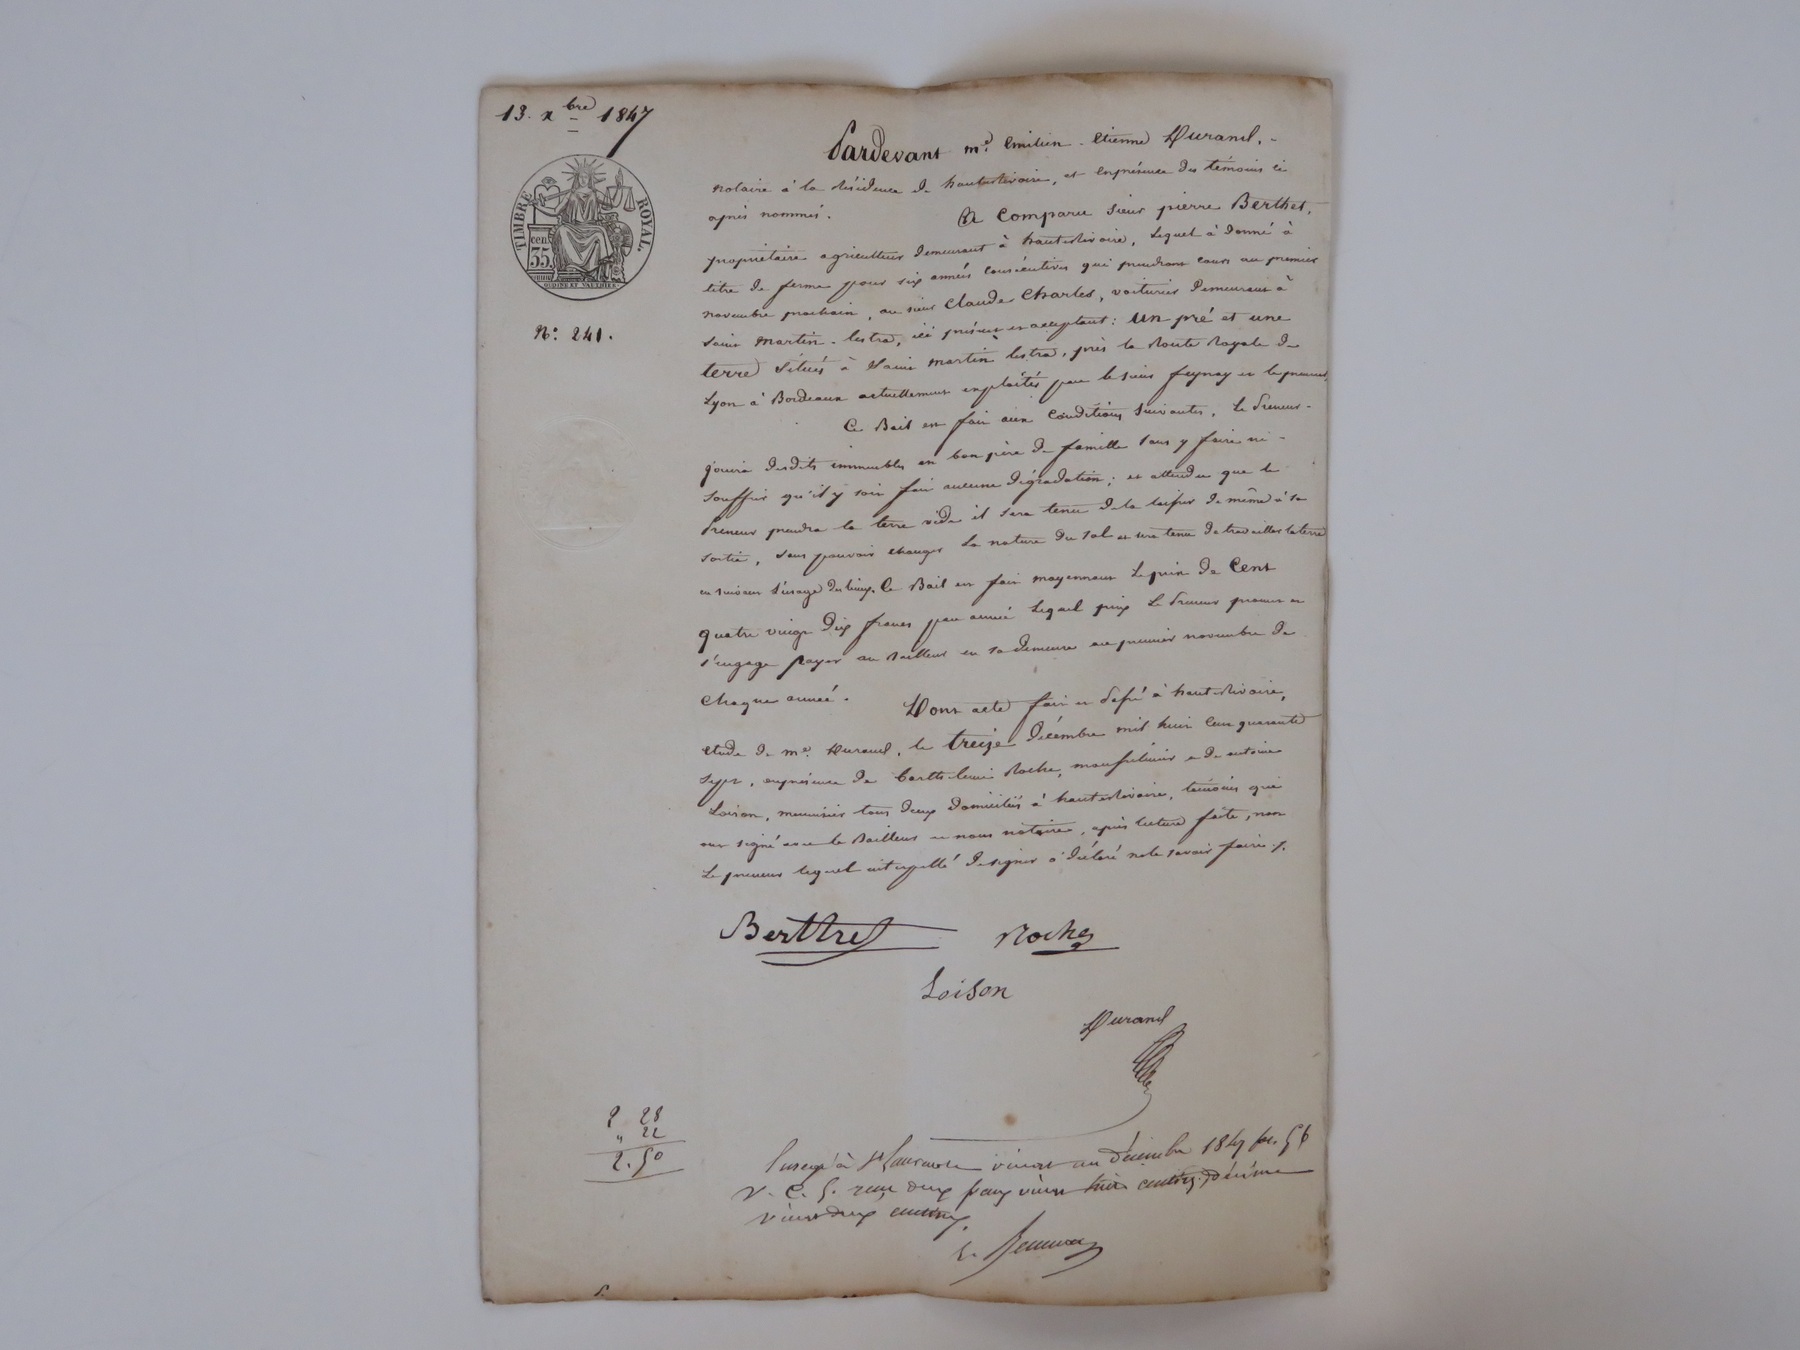 13. xbre 1847
TIMBRE ROYAL.
cen.
35.
N°: 241.
Pardevant me. Emilien - Etienne Durand, -
notaire à la résidence de hauterivoire, et enprésence des témoins ci
après nommés. A Comparu sieur pierre Berthet,
propriétaire agriculteur demeurant à hauterivoire, Lequel à donné à
titre de ferme pour six années consécutives qui prendront cours au premier
novembre prochain, au sieur Claude Charles, voiturier Demeurant à
Saint Martin-lestra, ici présent et acceptant: un pré et une
terre situés à Saint martin lestra, près la Route Royale de
Lyon à Bordeaux actuellement exploités par le sieur feynay et le preneur,
Ce Bail est fait aux Conditions suivantes, Le Preneur -
jouira desdits immeubles en bon père de famille sans y faire ni -
souffrir qu'il y soit fait aucune dégradation; et attendu que le
Preneur prendra la terre vide il sera tenu de la laisser de même à sa
sortie, sans pouvoir changer la nature du sol et sera tenu de travailler la terre
en suivant l'usage des lieux. Ce Bail est fait moyennant Le prix de Cent
quatre vingt dix francs par année Lequel prix Le Preneur promet et
s'engage payer au Bailleur en sa demeure au premier novembre de
chaque année. Dont acte fait et passé à hauterivoire,
etude de me. Durand, le treize décembre mil huit cent quarante
sept, enprésence de Barthelemi Roche, et de antoine
Loison, menuisier tous deux domiciliés à hauterivoire, témoins qui
ont signé avec le Bailleur et nous notaire, après lecture faite, non
Le preneur lequel interpellé de signer à déclaré ne le savoir faire ./.
Berthet Roche
Loison
Durand
2 28
" 22
2. 50
Enregé à St Laurent le vingt un décembre 1847 fo. 56
v. C. 5. reçu deux francs vingt huit centes. Décime
vingt deux centimes.